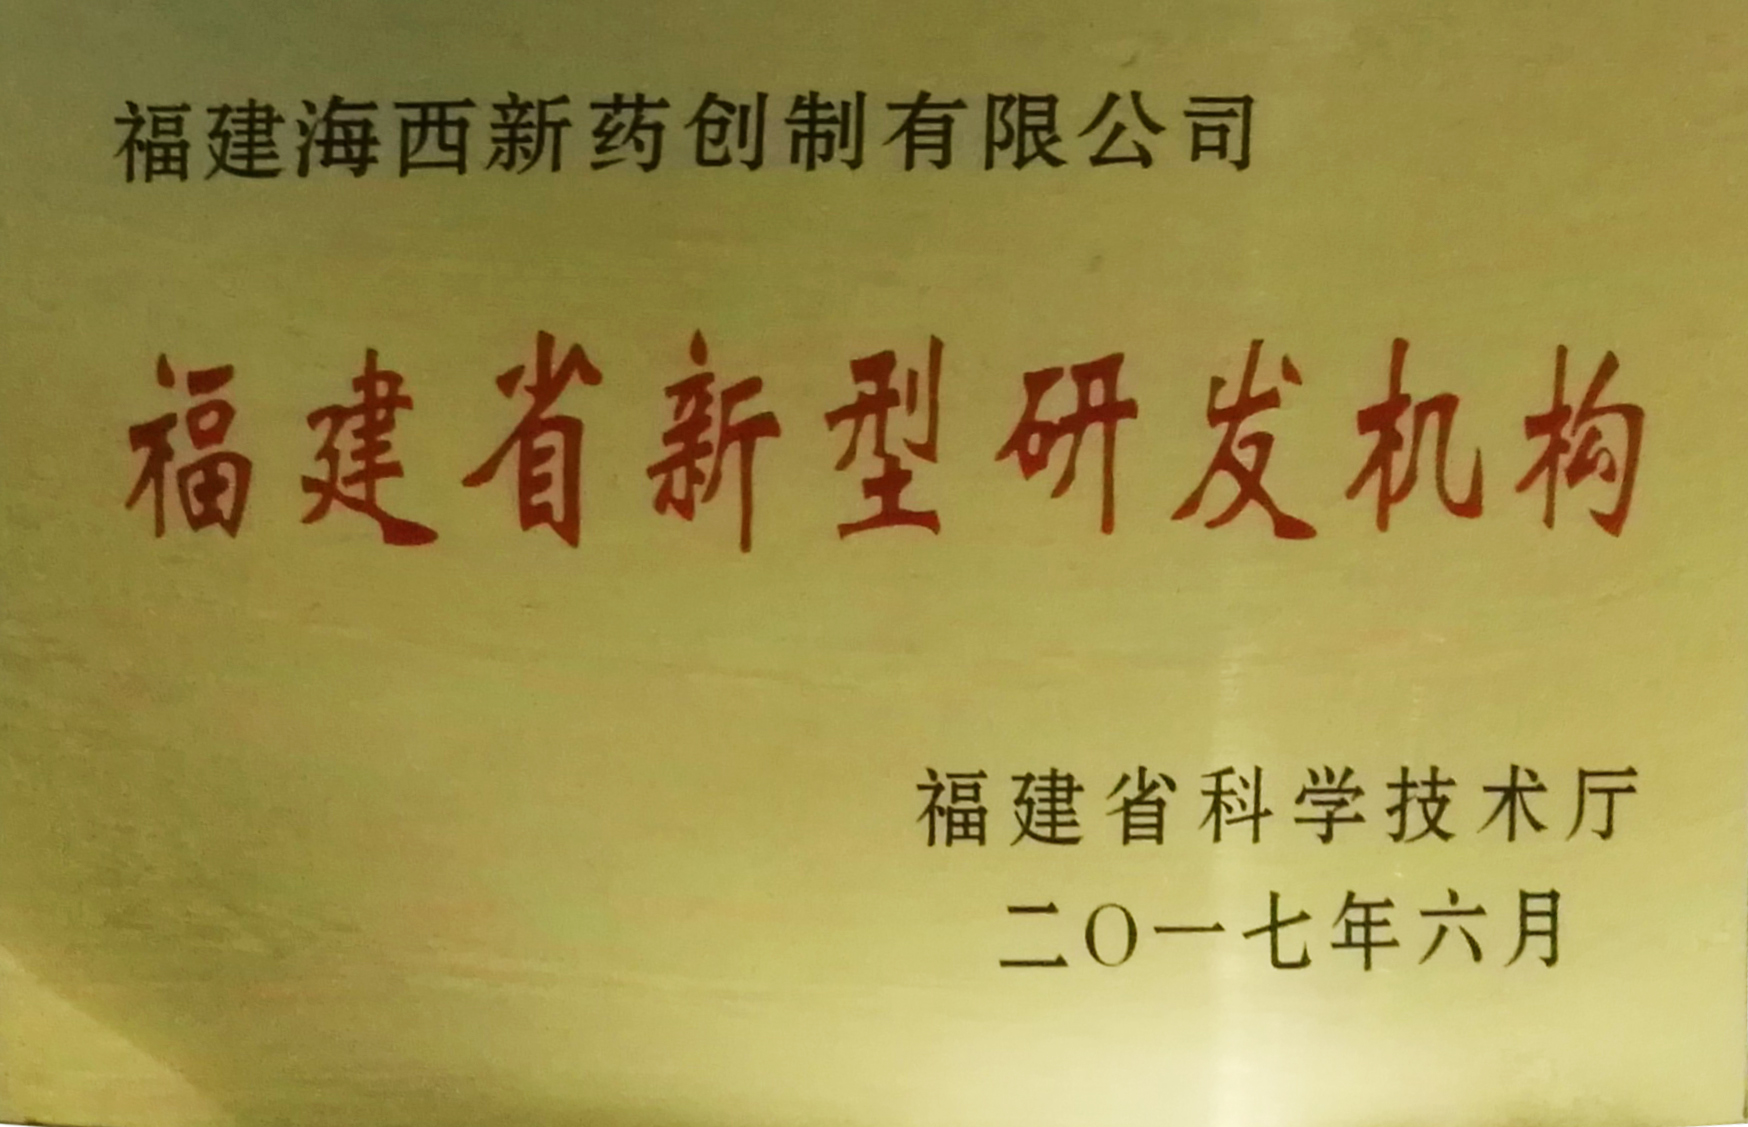 福建海西新药创制有限公司
福建省新型研发机构
福建省科学技术厅
二〇一七年六月